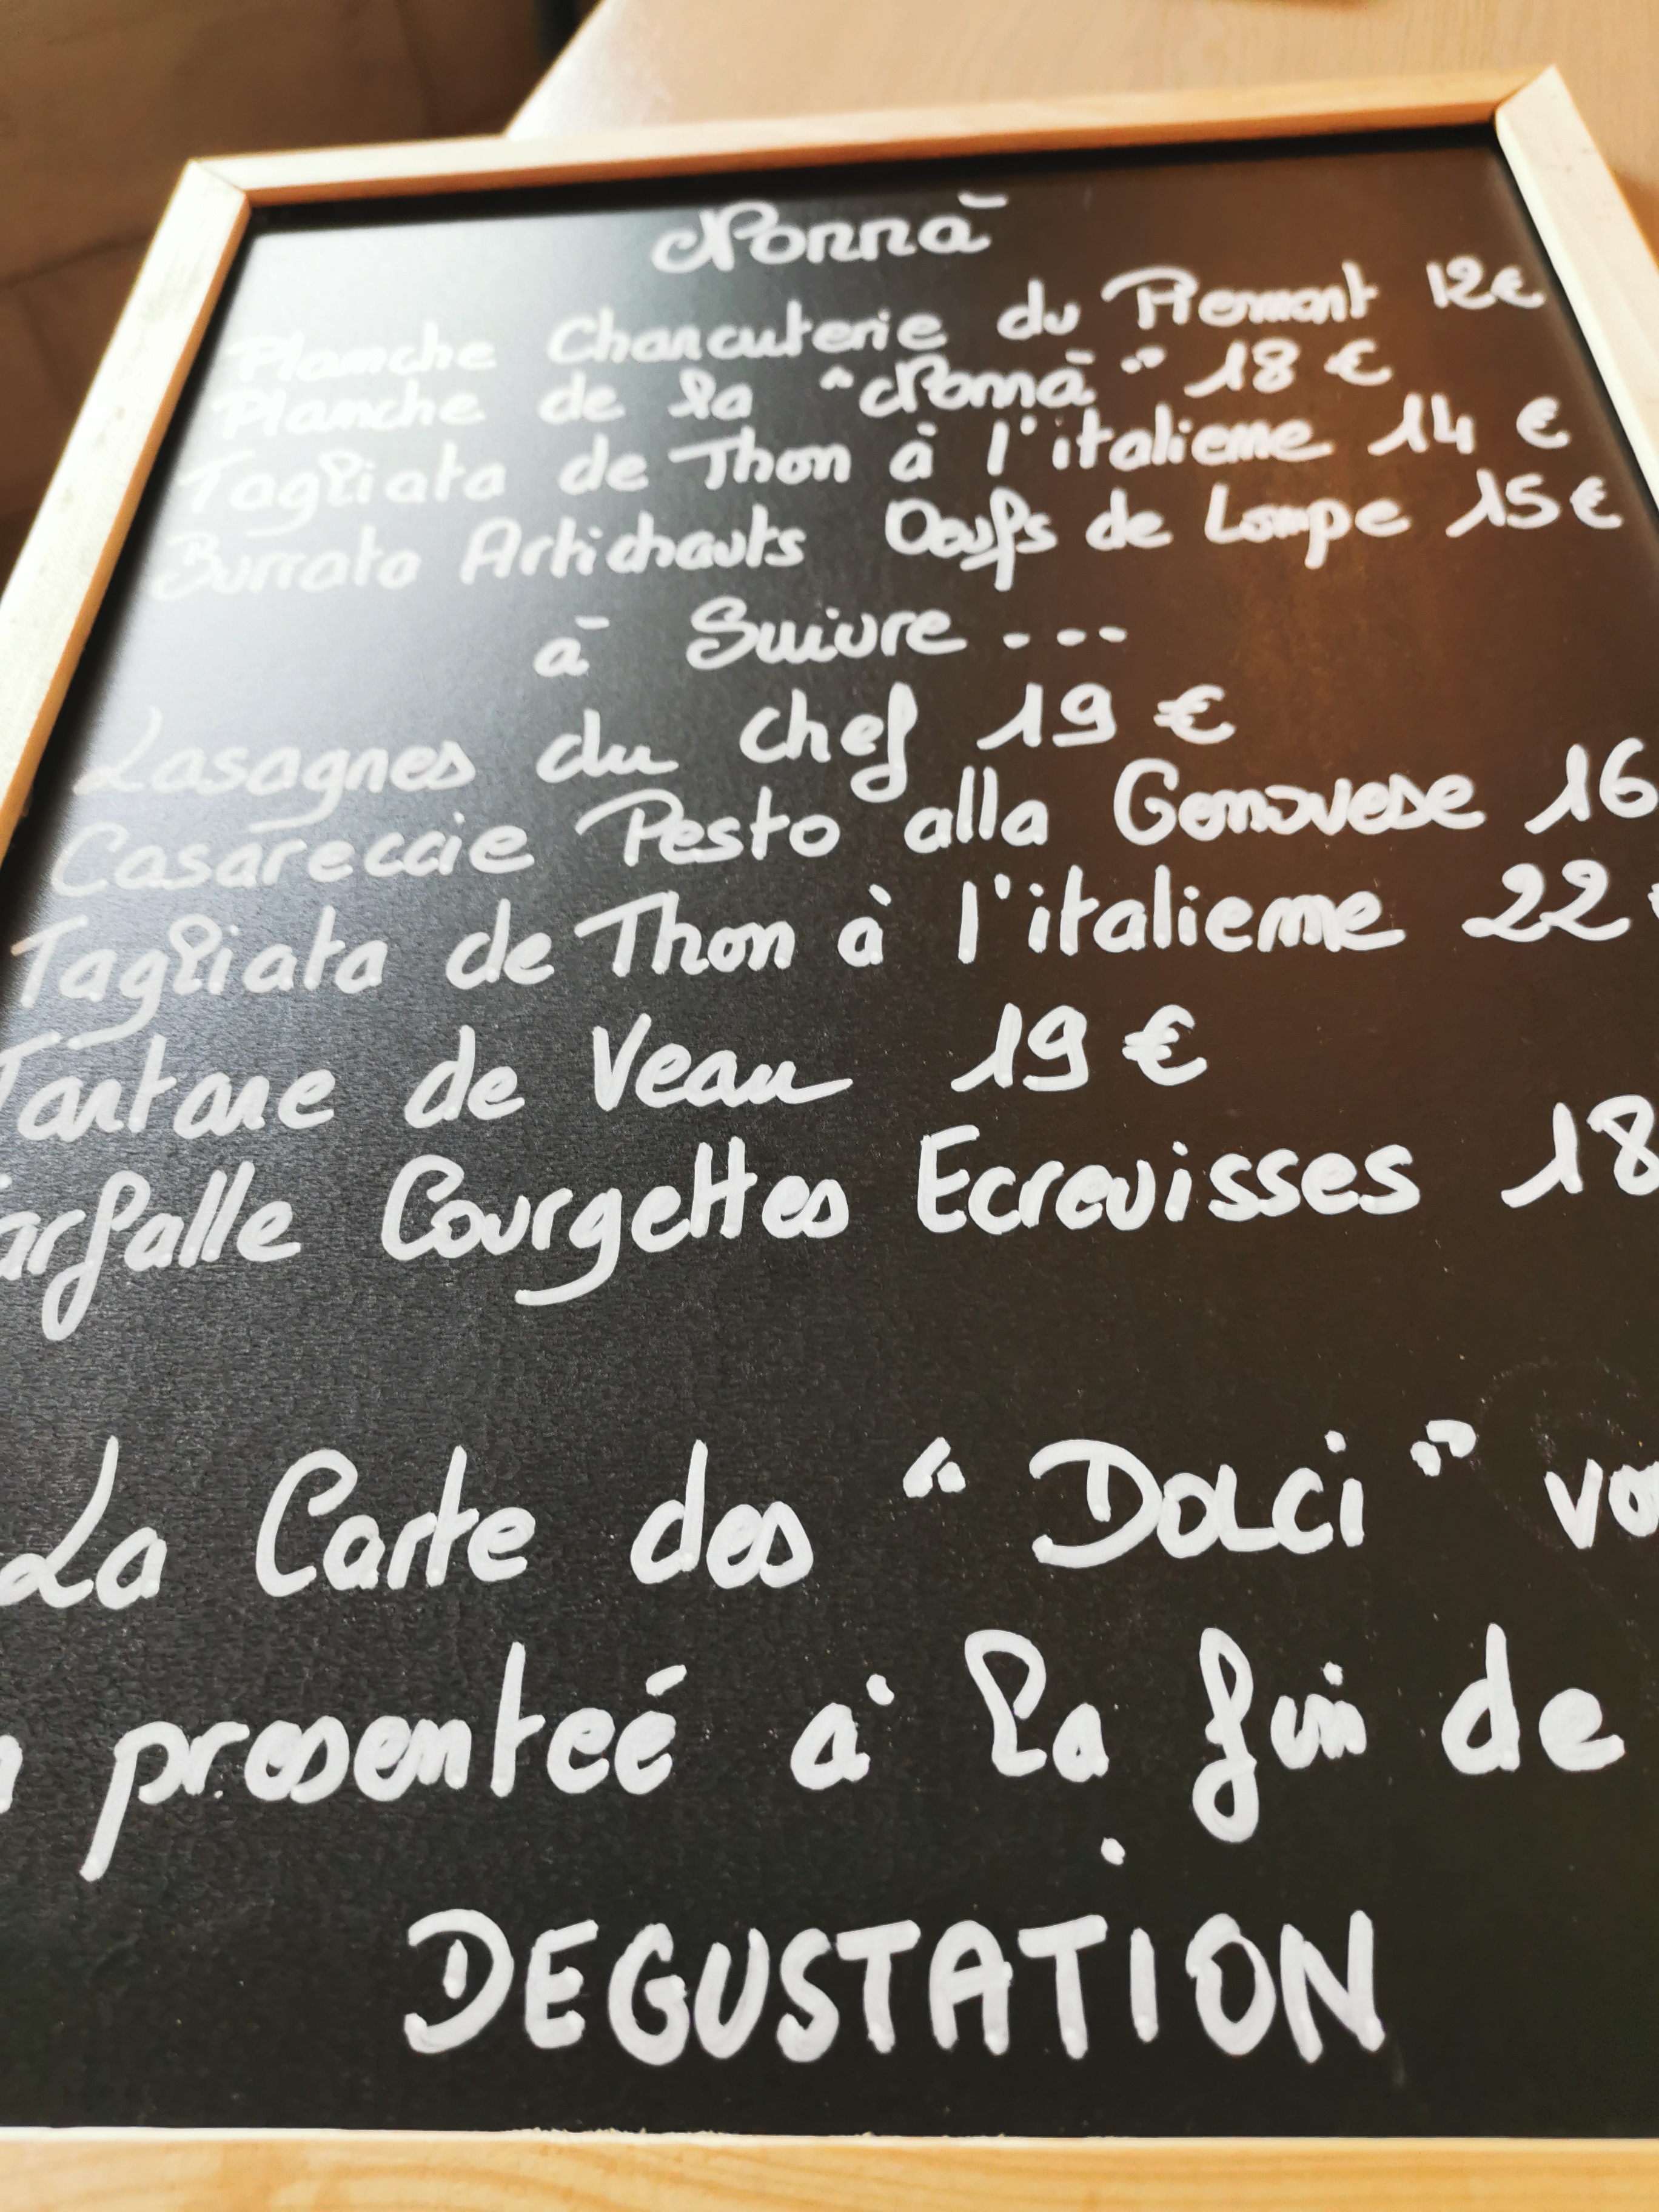 Nonnà
Planche Charcuterie du Piemont 12€
Planche de la "Nonnà" 18 €
Tagliata de Thon à l'italienne 14 €
Burrata Artichauts Oeufs de Lompe 15€
à Suivre ---
Lasagnes du chef 19 €
Casareccie Pesto alla Genovese 16
Tagliata de Thon à l'italienne 22
Tartare de Veau 19 €
arfalle Courgettes Ecrevisses 18
La Carte des "Dolci"
presenteé à la fin de
DEGUSTATION